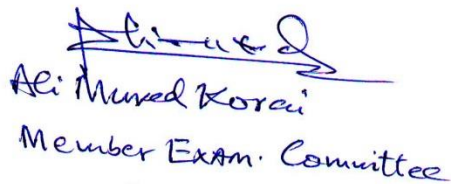 Ali Murad Korai
Member Exam. Committee